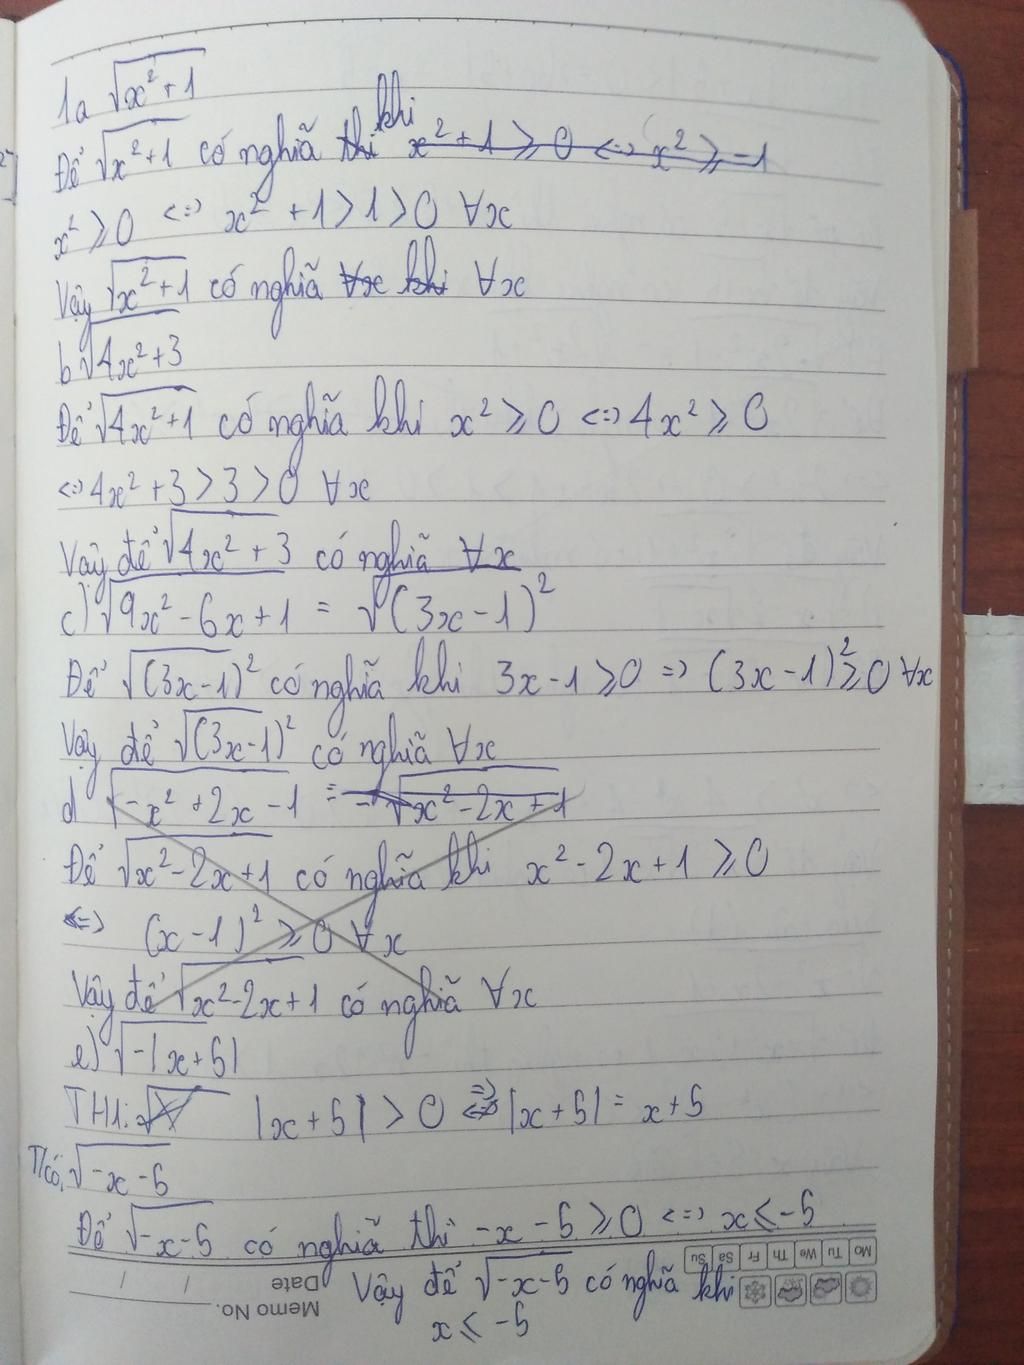 1a √x²+1
Để √x²+1 có nghĩã thì khi x²+1 ⩾ 0 <=> x² ⩾ -1
x² ⩾ 0 <=> x² +1>1>0 ∀x
Vậy √x²+1 có nghĩã ∀x khi ∀x
b √4x²+3
Để √4x²+1 có nghĩã khi x² ⩾ 0 <=> 4x² ⩾ 0
<=> 4x²+3>3>0 ∀x
Vậy để √4x²+3 có nghĩã ∀x
c) √9x²-6x+1 = √(3x-1)²
Để √(3x-1)² có nghĩã khi 3x-1 ⩾ 0 => (3x-1)² ⩾ 0 ∀x
Vậy để √(3x-1)² có nghĩã ∀x
d √-x²+2x-1 = -√x²-2x+1
Để √x²-2x+1 có nghĩã khi x²-2x+1 ⩾ 0
<=> (x-1)² ⩾ 0 ∀x
Vậy để √x²-2x+1 có nghĩã ∀x
e) √-|x+5|
TH1: |x+5| > 0 => |x+5| = x+5
T/có, √-x-5
Để √-x-5 có nghĩã thì -x-5 ⩾ 0 <=> x ⩽ -5
Mo Tu We Th Fr Sa Su
Memo No.
Date / /
Vậy để √-x-5 có nghĩã khi
x ⩽ -5